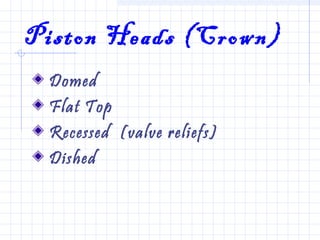 Piston Heads (Crown)
Domed
Flat Top
Recessed (valve reliefs)
Dished